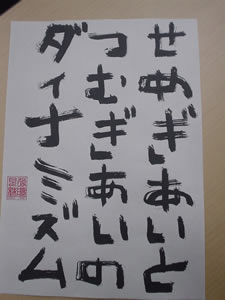 せめぎあいと
つむぎあいの
ダイナミズム